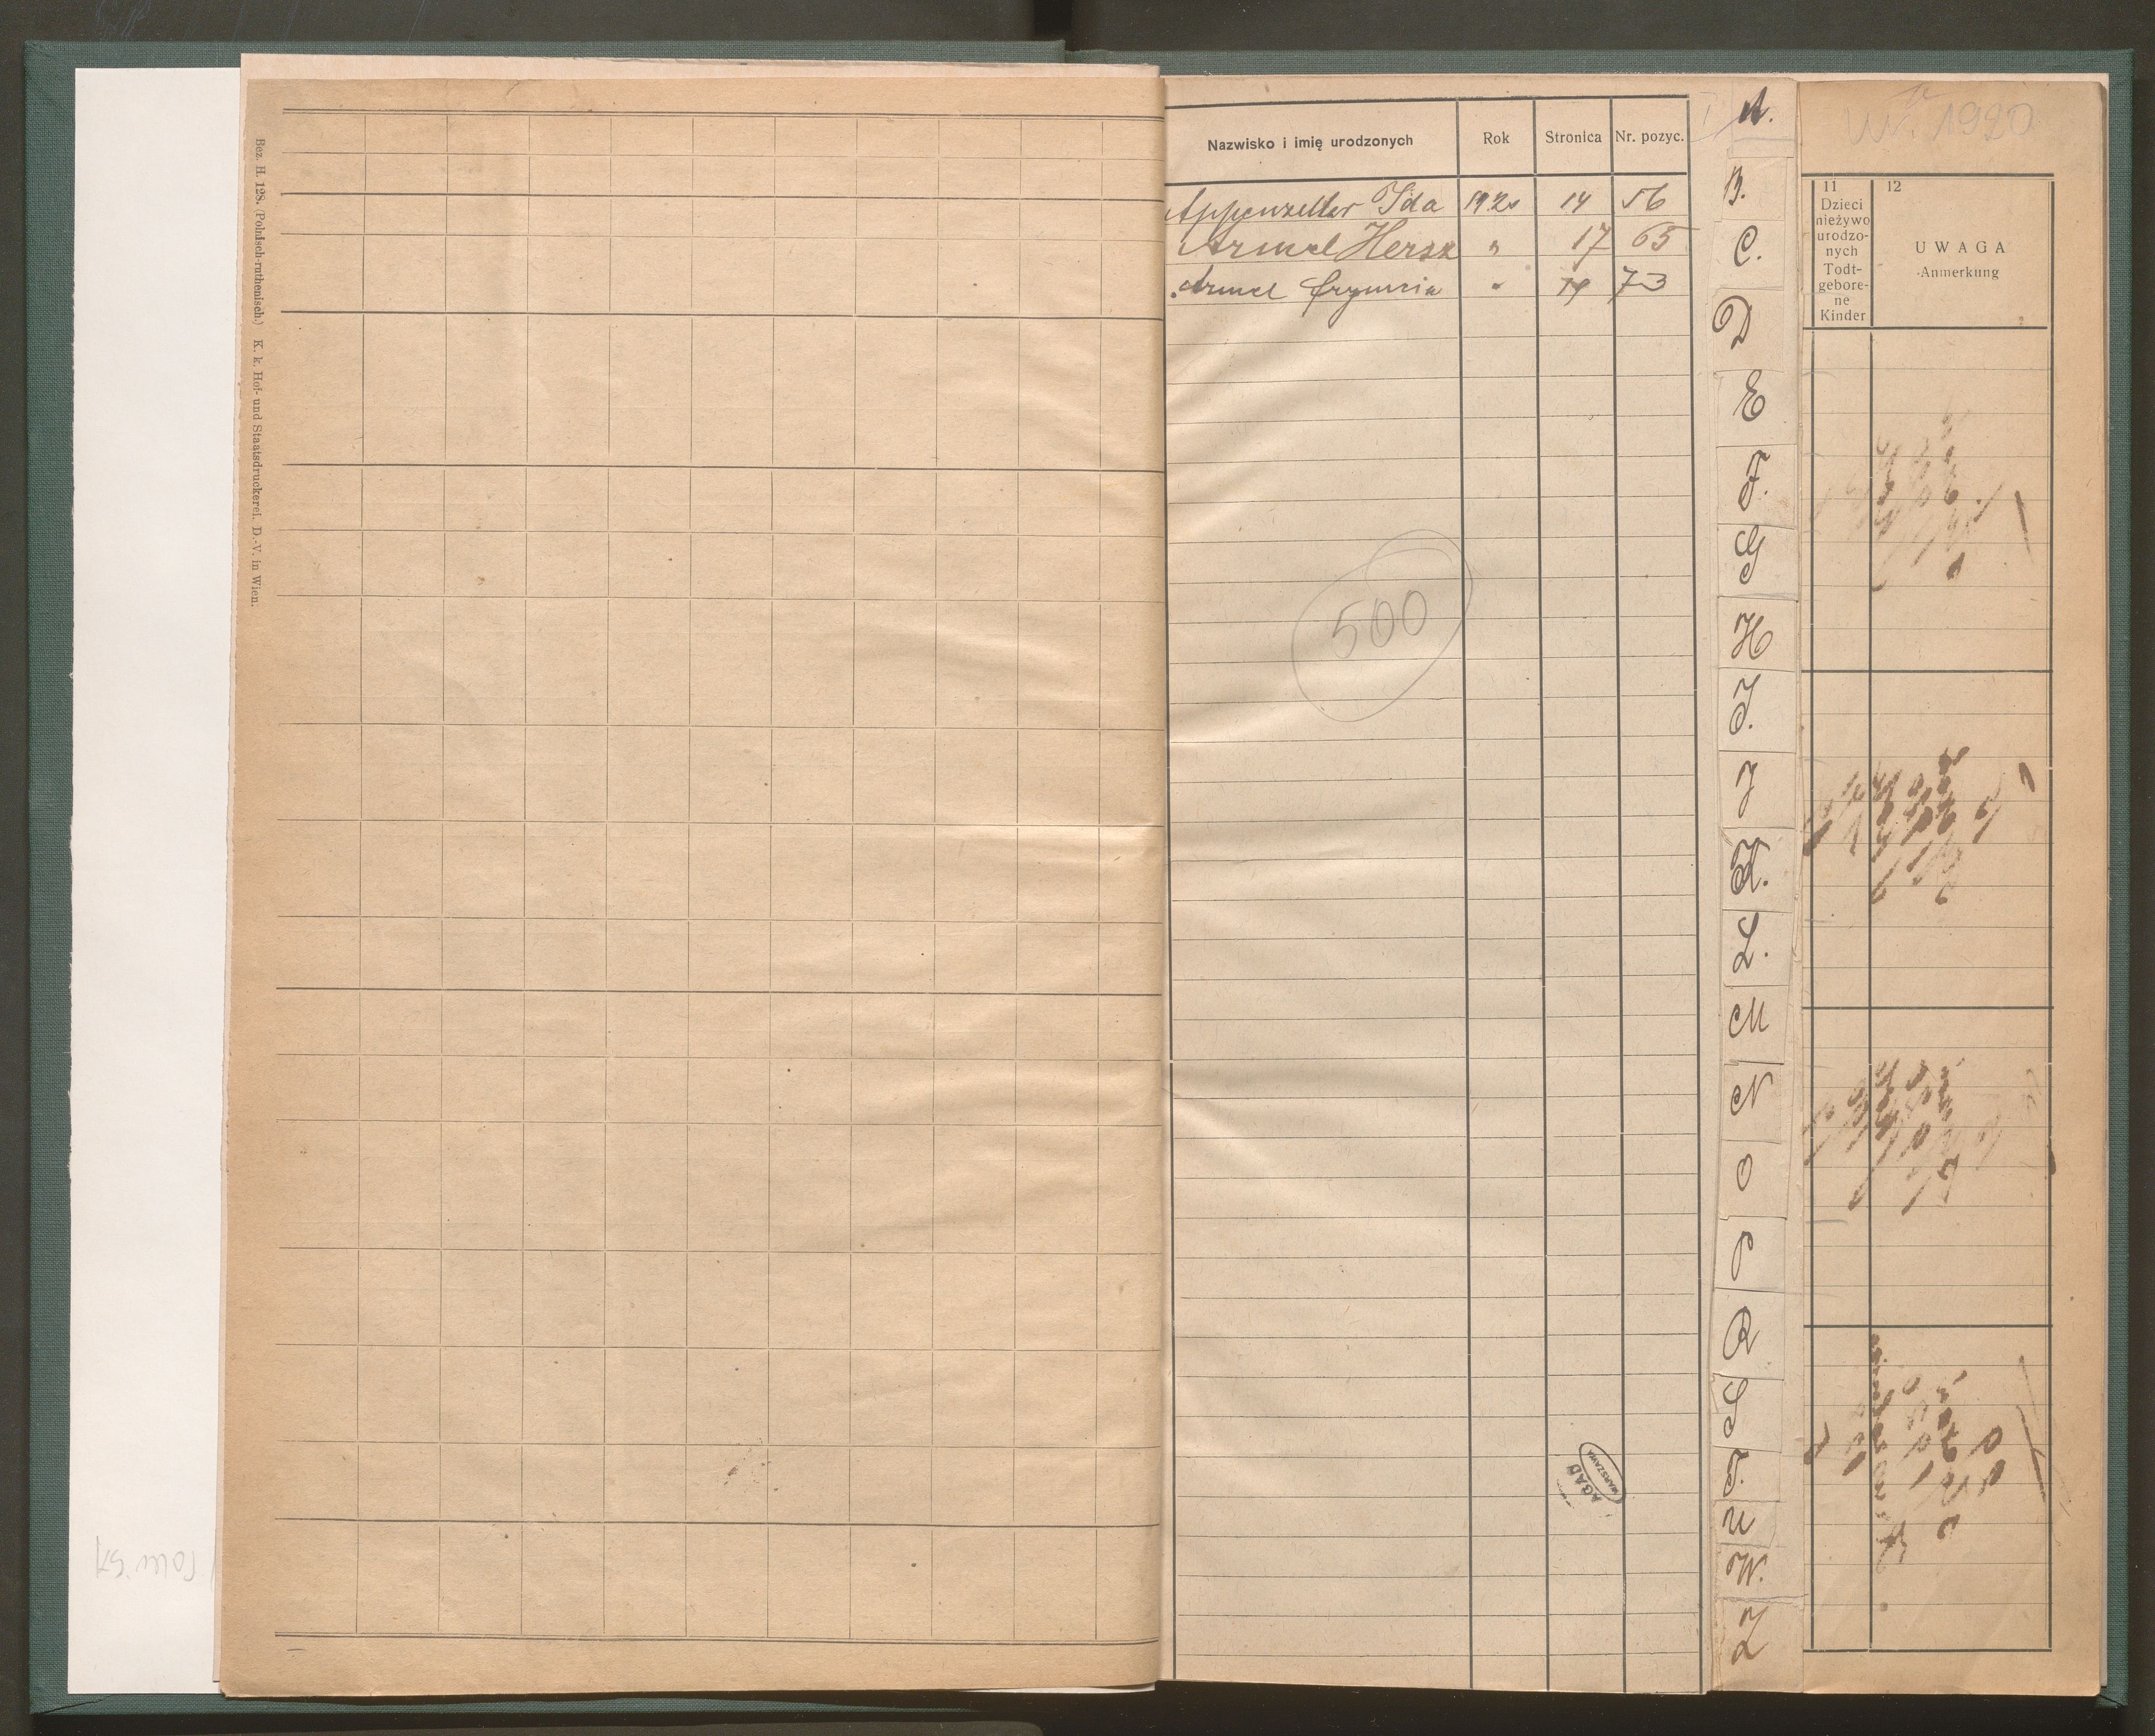 Bez. H. 128. (Polnisch-ruthenisch.) K. k. Hof- und Staatsdruckerei. D.-V. in Wien.
Nazwisko i imię urodzonych Rok Stronica Nr. pozyc.
Appenzeller Ida 1920 14 56
Armel Hersz " 17 65
Armel " 19 73
500
AGAD
WARSZAWA
A.
B.
C.
D
E
F.
G
H
I.
J
K.
L.
M
N
O
P
R
S
T.
U
W.
Z
1920
11
Dzieci
nieżywo
urodzo-
nych
Todt-
gebore-
ne
Kinder
12
UWAGA
Anmerkung